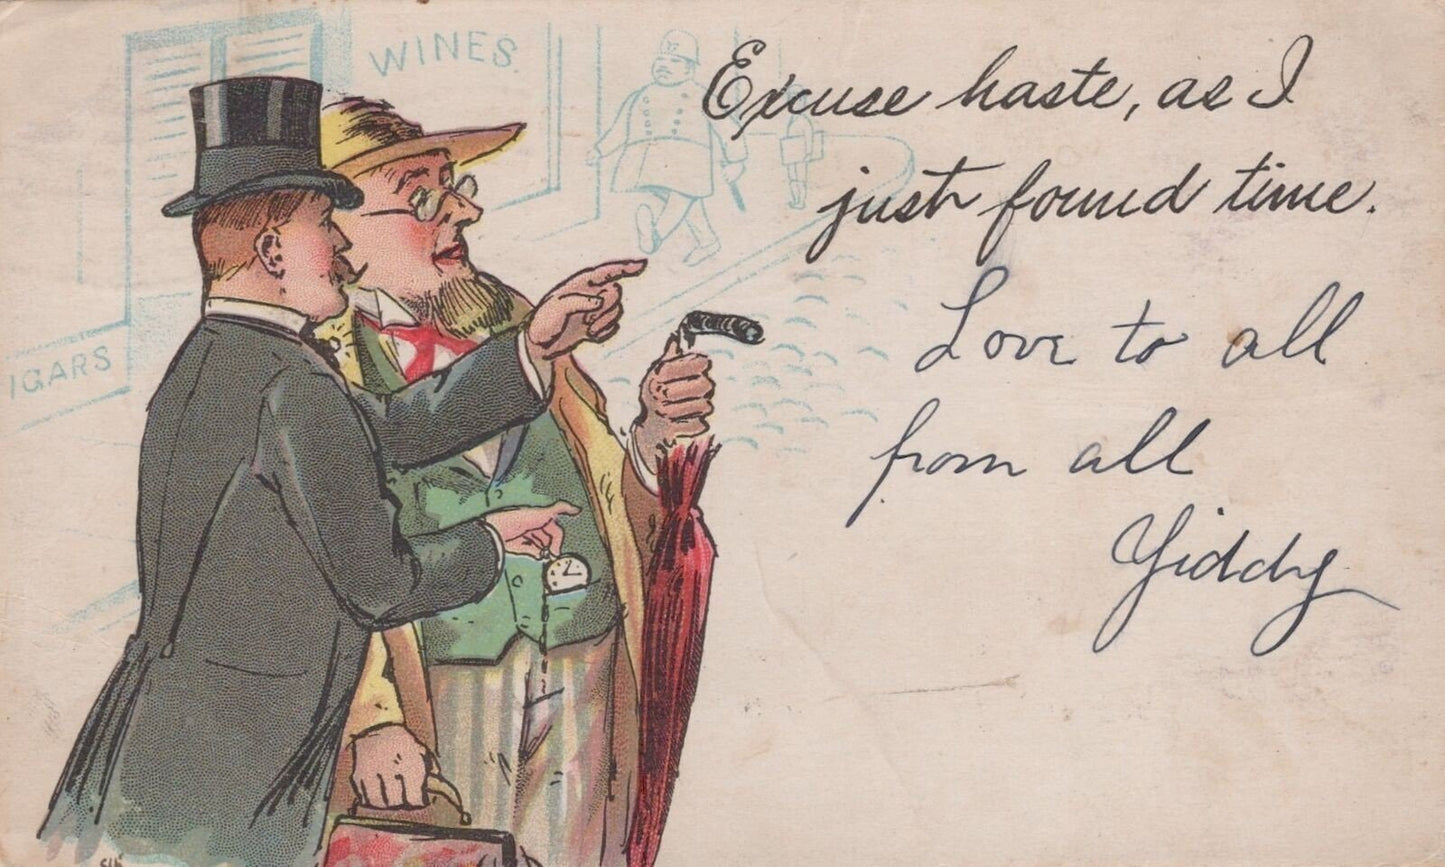 WINES
IGARS
Excuse haste, as I
just found time.
Love to all
from all
Giddy